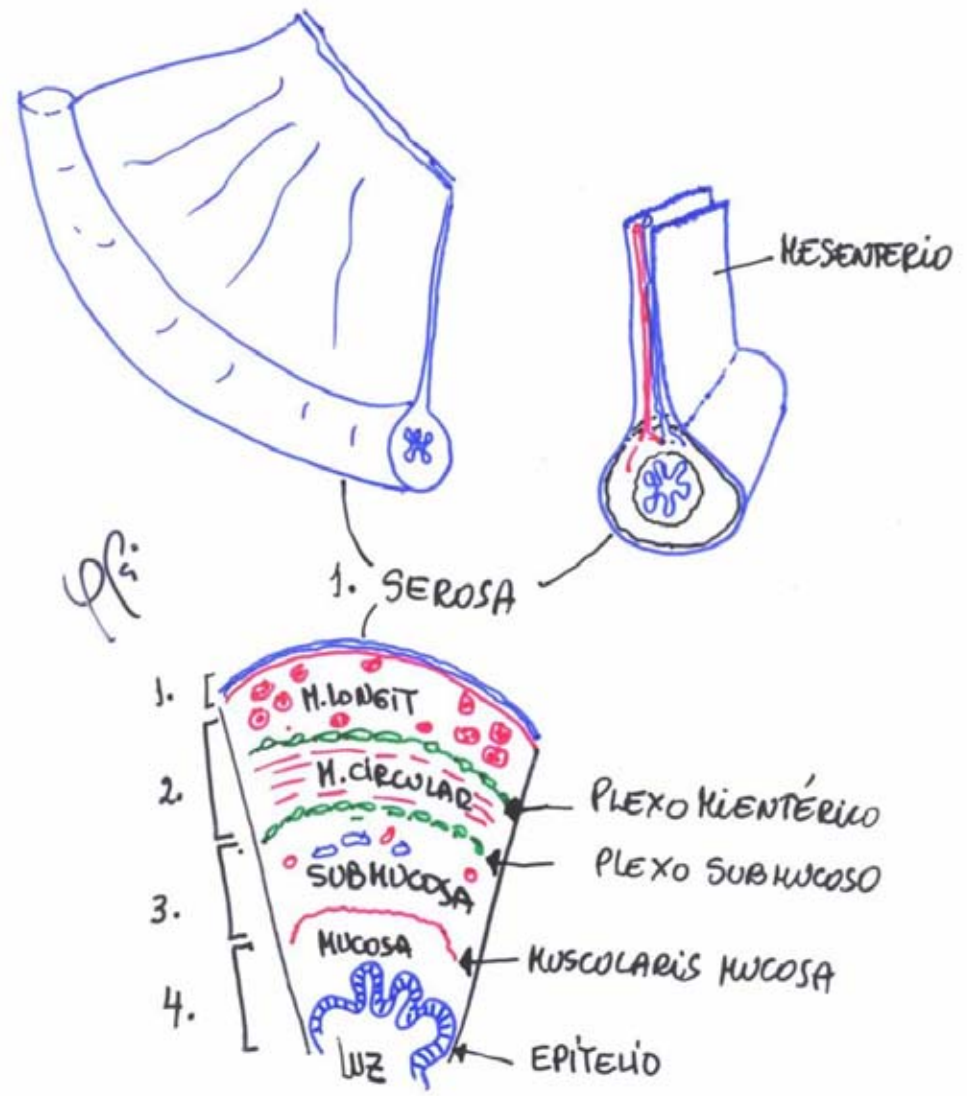 MESENTERIO
1. SEROSA
1.
M. LONGIT
2.
M. CIRCULAR
PLEXO MIENTÉRICO
PLEXO SUBMUCOSO
SUBMUCOSA
3.
MUCOSA
MUSCOLARIS MUCOSA
4.
LUZ
EPITELIO